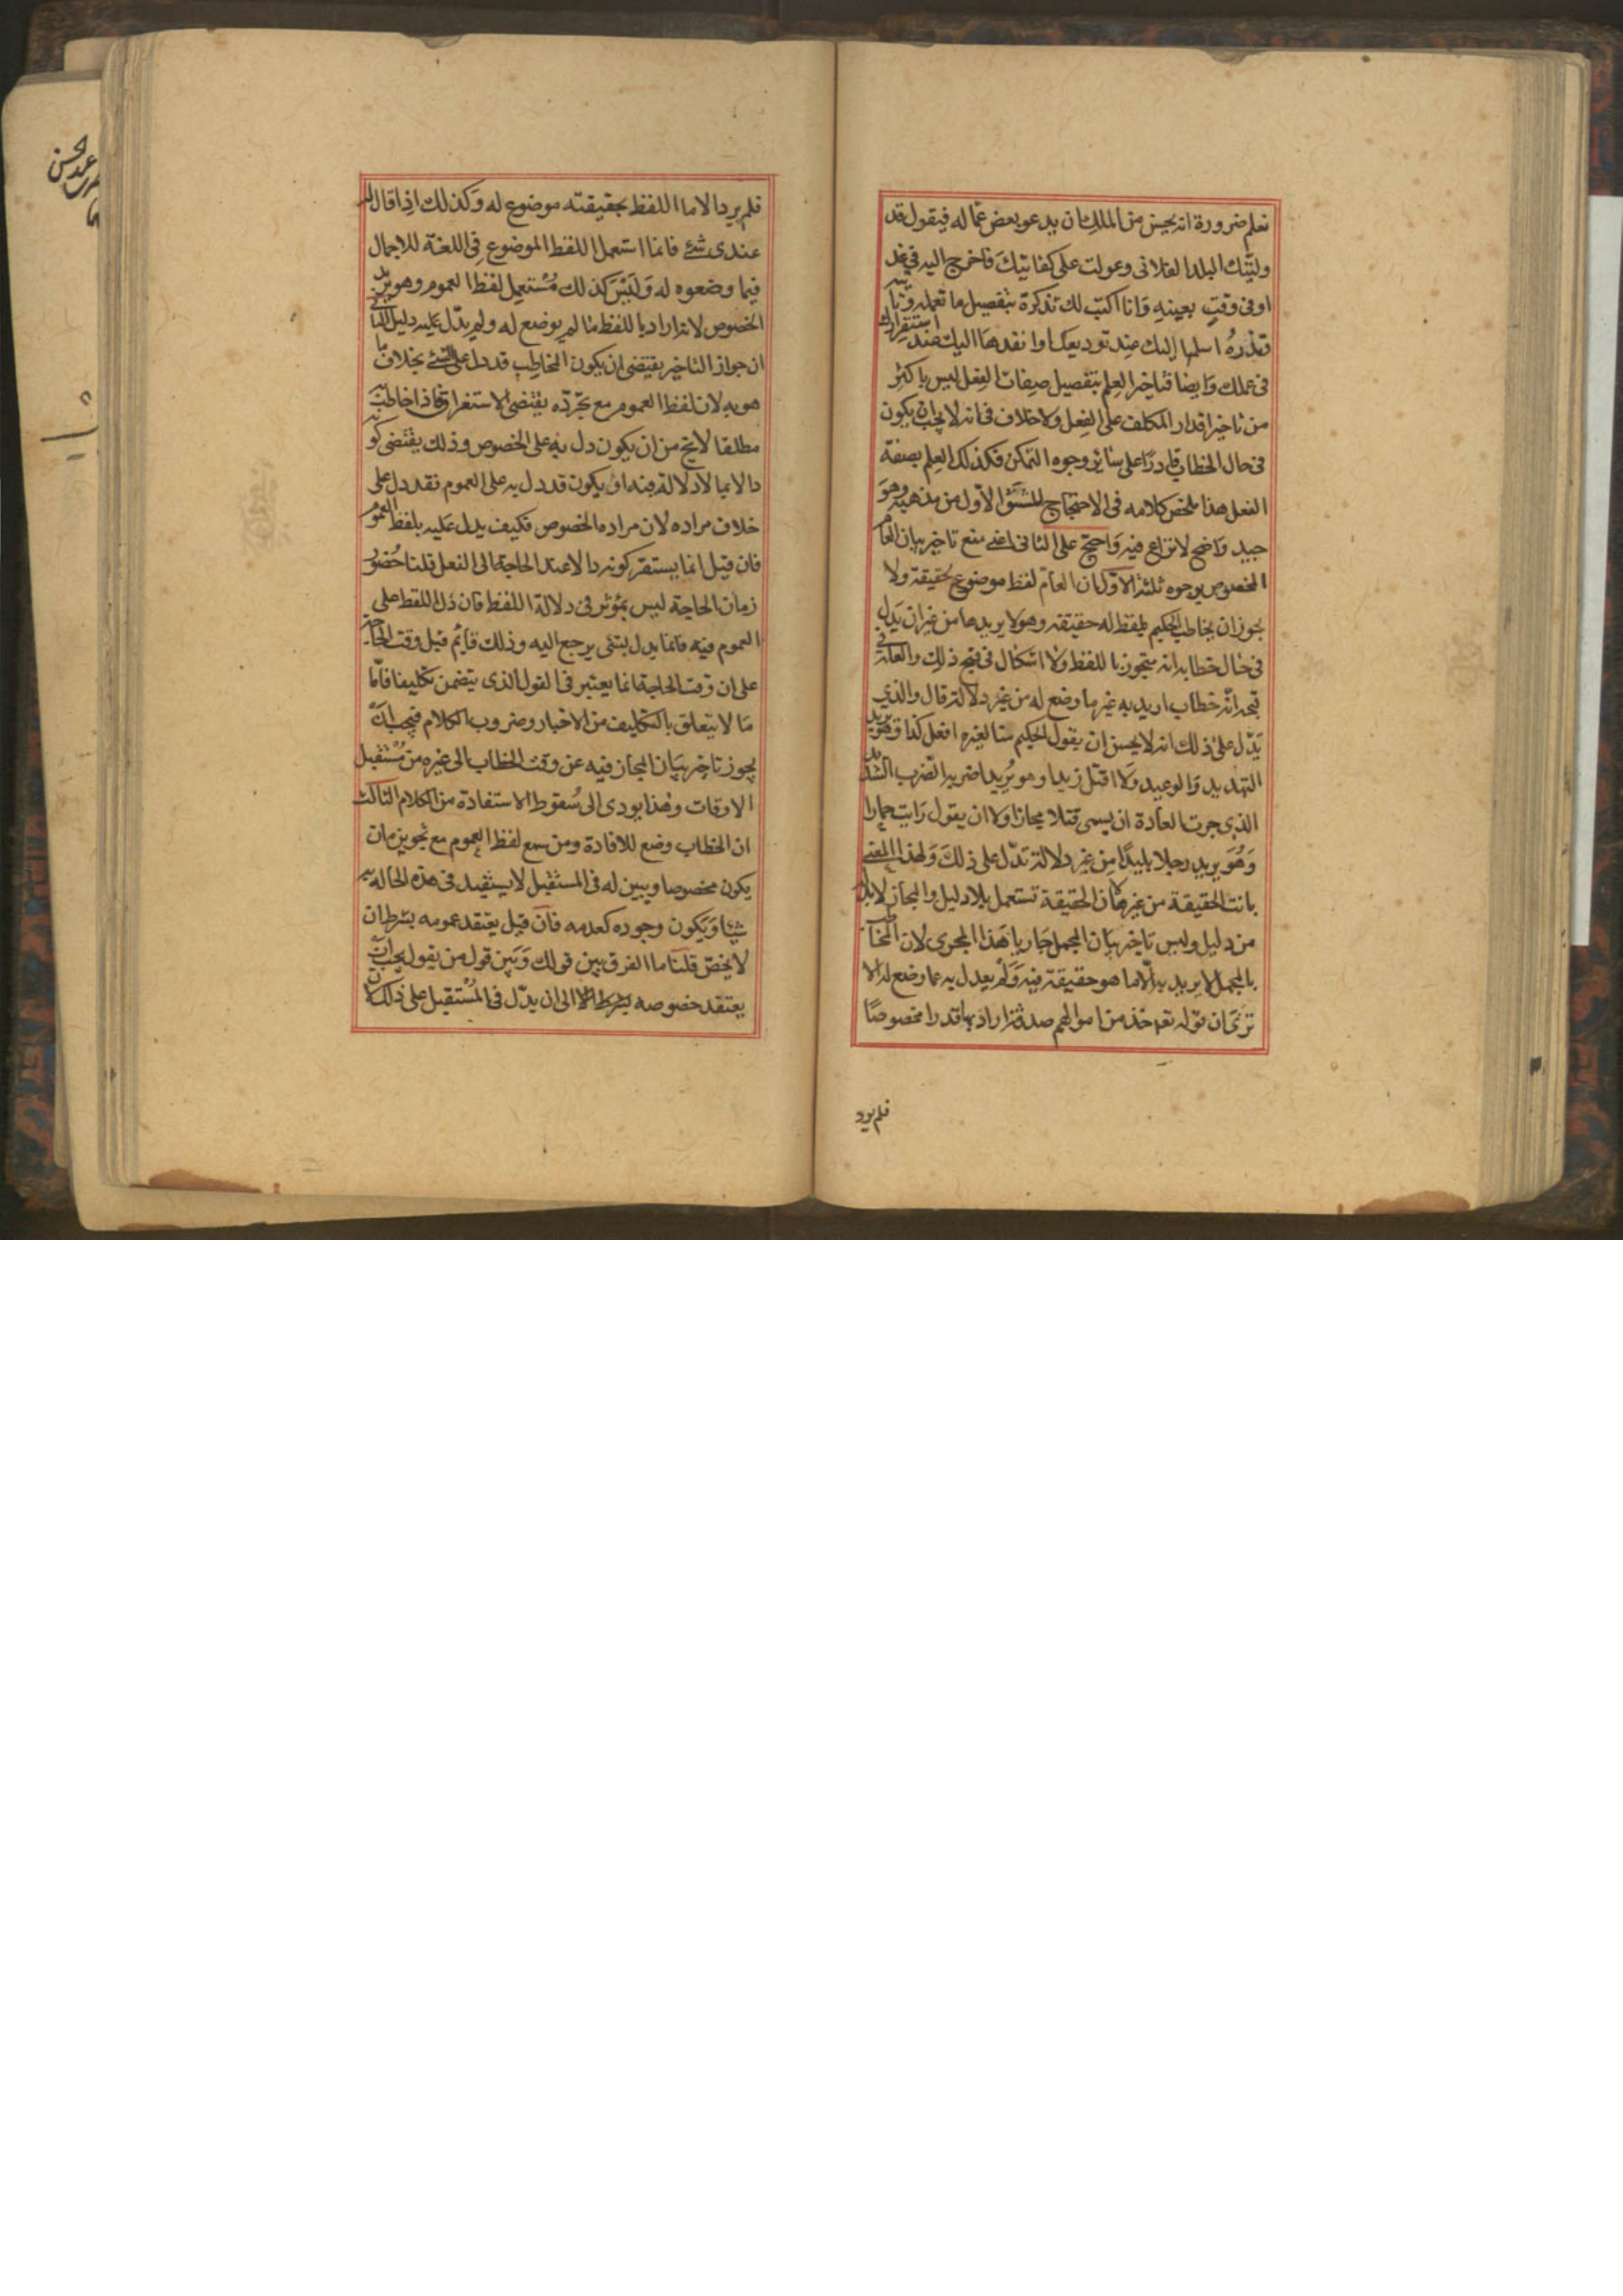 نعلم ضرورة انه يحسن من الملك ان يدعو بعض عماله فيقول قد
وليتك البلد الفلانى وعولت على كفايتك فاخرج اليه فى غد
او فى وقت بعينه وانا اكتب لك تذكرة بتفصيل ما تعمله وتأتيه
وتذره اسلمها إليك عند توديعك او انفذها اليك عند استقرارك
فى عملك وايضا فتاخير العلم بتفصيل صفات الفعل ليس باكثر
من تاخير اقدار المكلف على الفعل ولا خلاف فى انه لا يجب ان يكون
فى حال الخطاب قادرًا على سائر وجوه التمكن فكذلك العلم بصفة
الفعل هذا ملخص كلامه فى الاحتجاج للشق الاول من مذهبه وهو
جيد واضح لا نزاع فيه واحتج على الثانى اعنى منع تاخير بيان العام
المخصوص بوجوه ثلثة الاوّل ان العام لفظ موضوع لحقيقة ولا
يجوز ان يخاطب الحكيم بلفظ له حقيقة وهو لا يريدها من غير ان يدل
فى حال خطابه انه متجوز باللفظ ولا اشكال فى قبح ذلك والعلة فى
قبحه انه خطاب اريد به غير ما وضع له من غير دلالة قال والذي
يدّل على ذلك انه لا يحسن ان يقول الحكيم منا لغيره افعل كذا وهو يريد
التهديد والوعيد ولا اقتل زيدا وهو يُريد اضربه الضرب الشديد
الذي جرت العادة ان يسمى قتلا مجازا ولا ان يقول رايت حمارا
وَهُوَ يريد رجلا بليدًا من غير دلالة تدّل على ذلك ولهذا المعنى
بانت الحقيقة من غيرها لان الحقيقة تستعمل بلا دليل والمجاز لا بد له
من دليل وليس تاخير بيان المجمل جاريا هذا المجرى لان المخاطب
بالمجمل لا يريد به الّا ما هو حقيقة فيه ولم يعدل به عما وضع له الا
ترى ان قوله تعه خذ من اموالهم صدقة اراد بها قدرا مخصوصًا
فلم يرد
فلم يرد الا ما اللفظ بحقيقته موضوع له وكذلك اذا قال له
عندى شئ فانما استعمل اللفظ الموضوع فى اللغة للاجمال
فيما وضعوه له وليس كذلك مُستعمل لفظ العموم وهو يريد
الخصوص لانه اراد باللفظ ما لم يوضع له ولم يدّل عليه دليل الثانى
ان جواز التاخير يقتضى ان يكون المخاطب قد دل على الشئ بخلاف ما
هو به لان لفظ العموم مع تجرّده يقتضى الاستغراق فاذا خاطب به
مطلقا لا يخ من ان يكون دل به على الخصوص وذلك يقتضى كونه
دالا بما لا دلالة فيه او يكون قد دل به على العموم فقد دل على
خلاف مراده لان مراده الخصوص فكيف يدل عليه بلفظ العموم
فان قيل انما يستقر كونه دالا عند الحاجة الى الفعل قلنا حُضور
زمان الحاجة ليس بمؤثر فى دلالة اللفظ فان دل اللفظ على
العموم فيه فانما يدل بشئ يرجع اليه وذلك قايم قبل وقت الحاجة
على ان وقت الحاجة انما يعتبر فى القول الذى يتضمن تكليفا فامّا
ما لا يتعلق بالتكليف من الاخبار وضروب الكلام فيجب ان
يجوز تاخير بيان المجاز فيه عن وقت الخطاب الى غيره من مستقبل
الاوقات وهذا يودى الى سُقوط الاستفادة من الكلام الثالث
ان الخطاب وضع للافادة ومن سمع لفظ العموم مع تجويزه ان
يكون مخصوصا ويبين له فى المستقبل لا يستفيد فى هذه الحالة به
شيئا وَيكون وجوده كعدمه فان قيل يعتقد عمومه بشرط ان
لا يخصّ قلنا ما الفرق بين قولك وبين قول من يقول يجب ان
يعتقد خصوصه بشرط الا الى ان يدّل فى المستقبل على ذلك لان